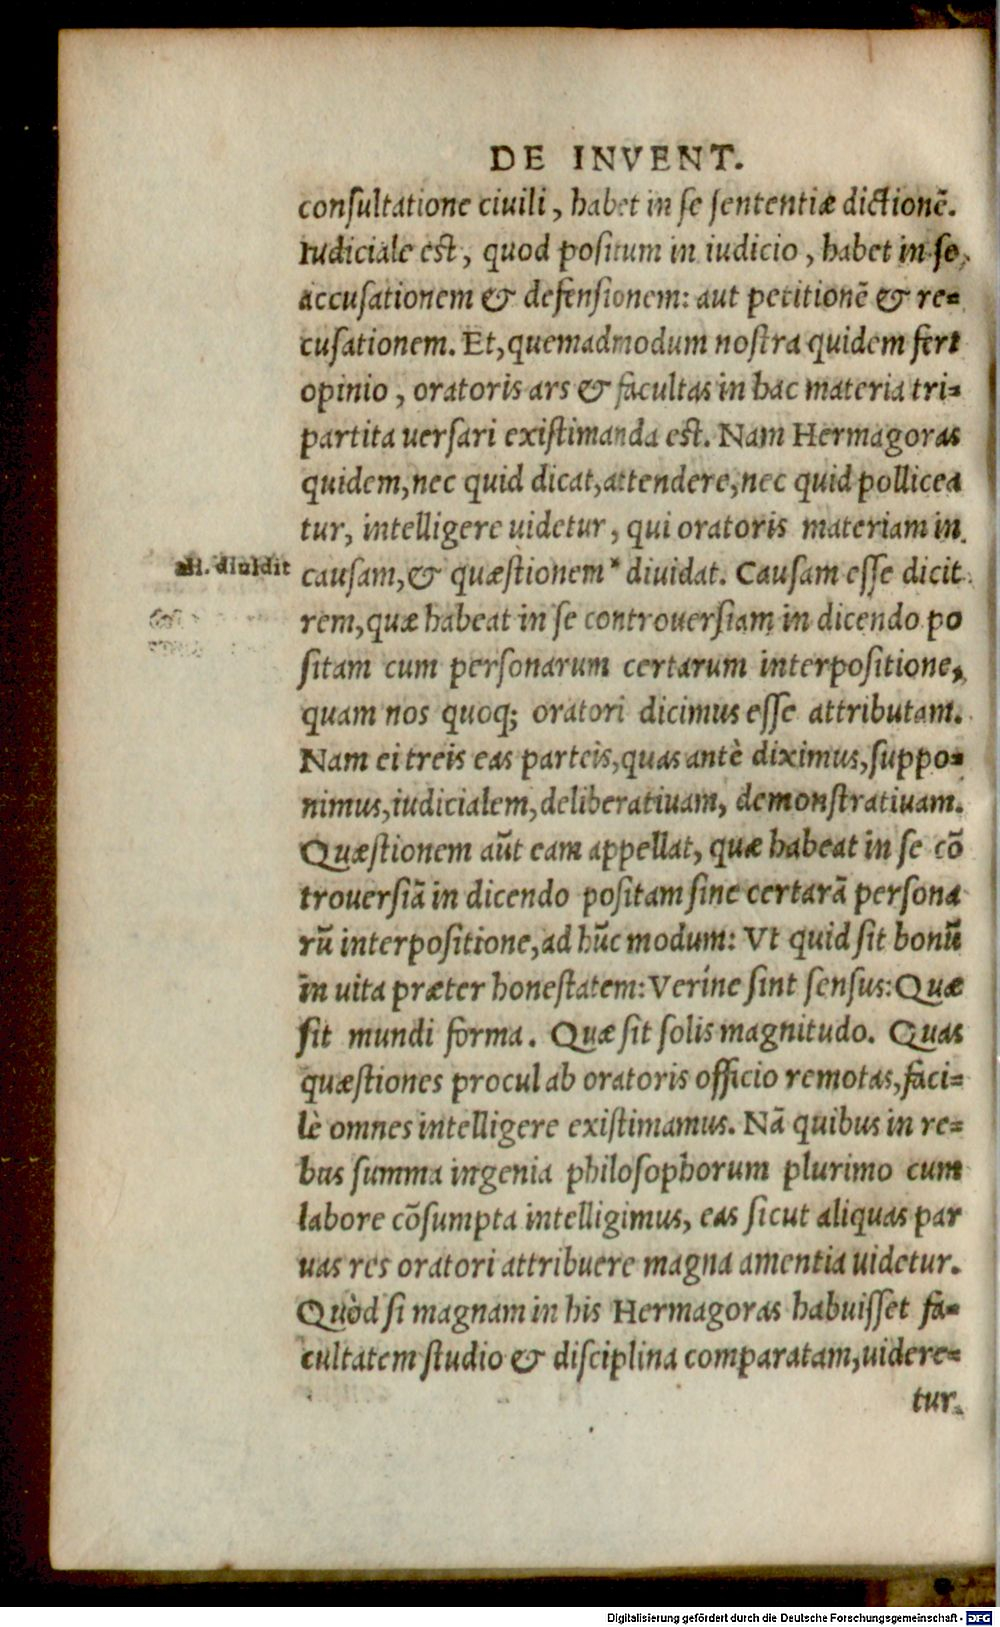 DE INVENT.
consultatione ciuili, habet in se sententiæ dictionē.
Iudiciale est, quod positum in iudicio, habet in se
accusationem & defensionem: aut petitionē & re=
cusationem. Et, quemadmodum nostra quidem fert
opinio, oratoris ars & facultas in hac materia tri=
partita uersari existimanda est. Nam Hermagoras
quidem, nec quid dicat, attendere, nec quid pollicea
tur, intelligere uidetur, qui oratoris materiam in
all. diuidit
causam, & quæstionem * diuidat. Causam esse dicit
rem, quæ habeat in se controuersiam in dicendo po
sitam cum personarum certarum interpositione,
quam nos quoq; oratori dicimus esse attributam.
Nam ei treis eas parteis, quas antè diximus, suppo=
nimus, iudicialem, deliberatiuam, demonstratiuam.
Quæstionem aūt eam appellat, quæ habeat in se cō
trouersiā in dicendo positam sine certarā persona
rū interpositione, ad hūc modum: Vt quid sit bonū
in uita præter honestatem: Verine sint sensus: Quæ
sit mundi forma. Quæ sit solis magnitudo. Quas
quæstiones procul ab oratoris officio remotas, faci=
lè omnes intelligere existimamus. Nā quibus in re=
bus summa ingenia philosophorum plurimo cum
labore cōsumpta intelligimus, eas sicut aliquas par
uas res oratori attribuere magna amentia uidetur.
Quòd si magnam in his Hermagoras habuisset fa=
cultatem studio & disciplina comparatam, uidere=
tur.
Digitalisierung gefördert durch die Deutsche Forschungsgemeinschaft - DFG